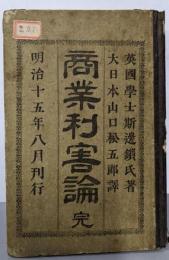 英國學士斯邊鎖氏著
大日本山口松五郎譯
商業利害論 完
明治十五年八月刊行